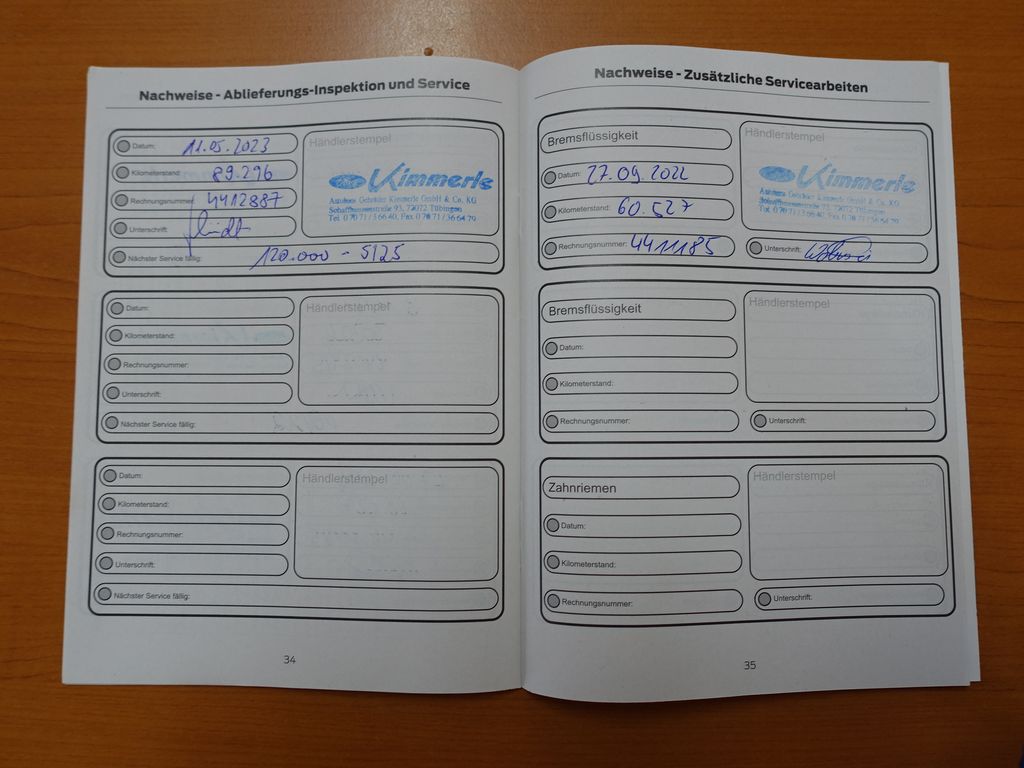 Nachweise - Ablieferungs-Inspektion und Service
Datum: 11.05.2023
Kilometerstand: 89.296
Rechnungsnummer: 4412887
Unterschrift:
Nächster Service fällig: 120.000 - 5/25
Händlerstempel
Kimmerle
Autohaus Gebrüder Kimmerle GmbH & Co. KG
Schaffhausenstraße 93, 72072 Tübingen
Tel. 0 70 71 / 3 66 40, Fax 0 70 71 / 36 64 79
Datum:
Kilometerstand:
Rechnungsnummer:
Unterschrift:
Nächster Service fällig:
Händlerstempel
Datum:
Kilometerstand:
Rechnungsnummer:
Unterschrift:
Nächster Service fällig:
Händlerstempel
34
Nachweise - Zusätzliche Servicearbeiten
Bremsflüssigkeit
Datum: 27.09.2022
Kilometerstand: 60.527
Rechnungsnummer: 4411185
Händlerstempel
Kimmerle
Autohaus Gebrüder Kimmerle GmbH & Co. KG
Schaffhausenstraße 93, 72072 Tübingen
Tel. 0 70 71 / 3 66 40, Fax 0 70 71 / 36 64 79
Unterschrift:
Bremsflüssigkeit
Datum:
Kilometerstand:
Rechnungsnummer:
Händlerstempel
Unterschrift:
Zahnriemen
Datum:
Kilometerstand:
Rechnungsnummer:
Händlerstempel
Unterschrift:
35